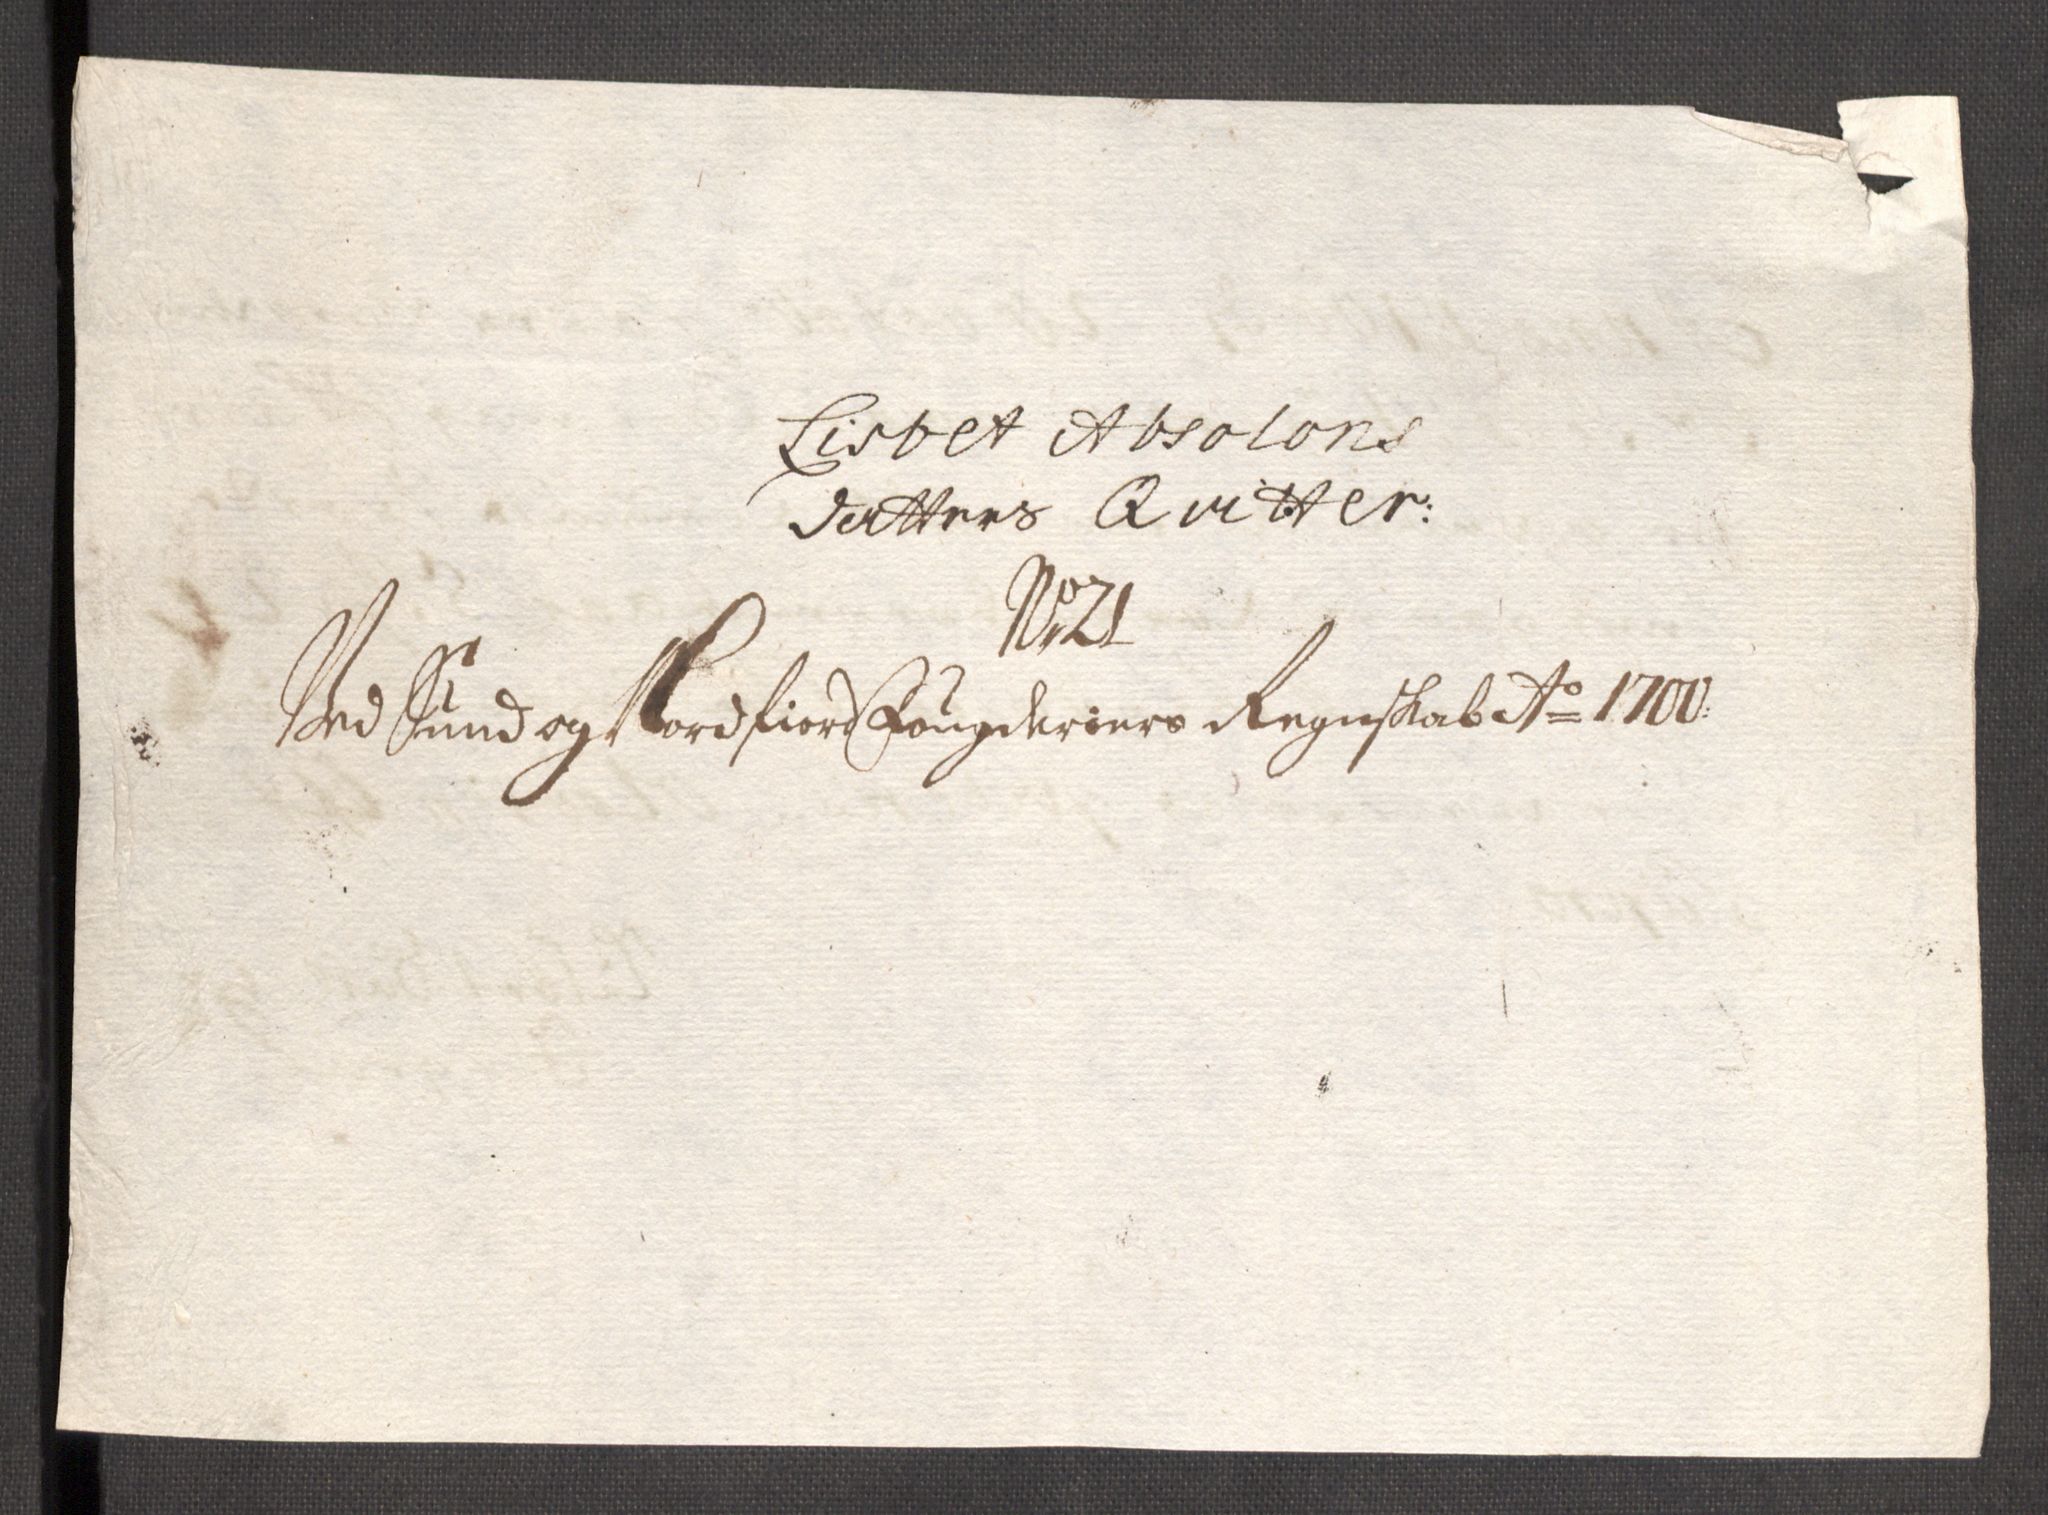 Lisbet Absolons
datters Qvitter:
No 21
Ved Sund og Nordfiord Fougderiers Regnskab Ao 1700: